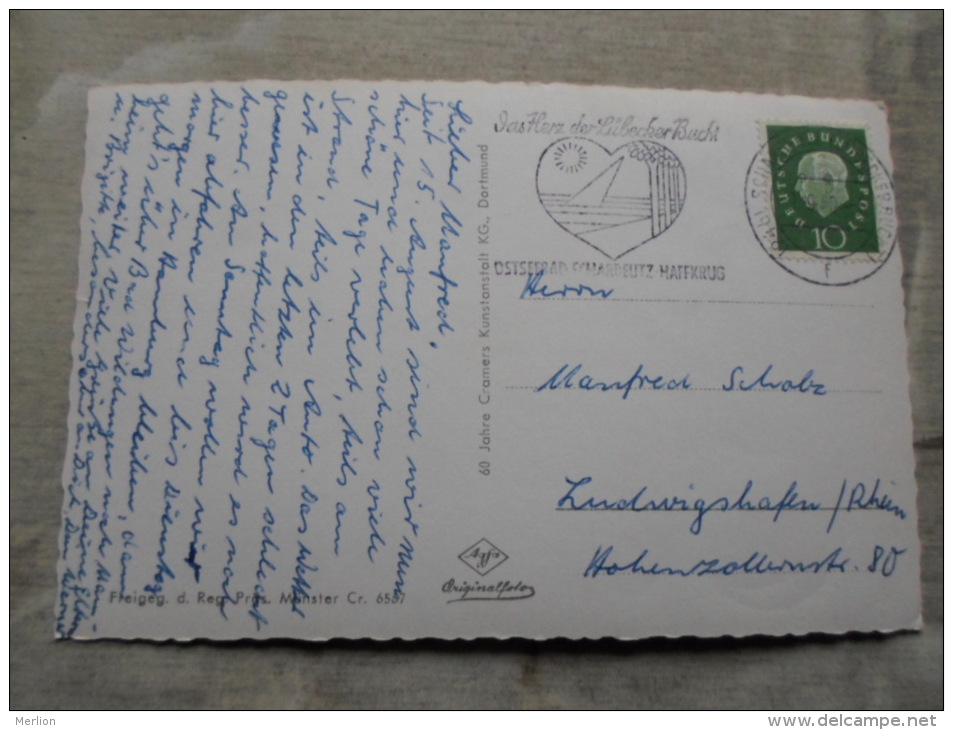 Lieber Manfred.
Seit 15. August sind wir nun
hier und haben schon viele
schöne Tage verlebt, teils am
Strand, teils im Auto. Das Wetter
ist in den letzten 2 Tagen schlecht
gewesen, hoffentlich wird es noch
besser. Am Sonntag wollen wir
hier abfahren und bis Dienstag
morgen in Hamburg bleiben, dann
geht's über Bad Wildungen nach Hau-
heim weiter. Viele Grüße an Deine Eltern
u. besonders an Dich, Dein Werner
Freigeg. d. Reg. Präs. Münster Cr. 6587
60 Jahre Cramers Kunstanstalt KG., Dortmund
Agfa
Originalfoto
Das Herz der Lübecker Bucht
OSTSEEBAD SCHARBEUTZ-HAFFKRUG
DEUTSCHE BUNDESPOST
10
Herrn
Manfred Scholz
Ludwigshafen/Rhein
Hohenzollernstr. 80
Merlion
www.delcampe.net